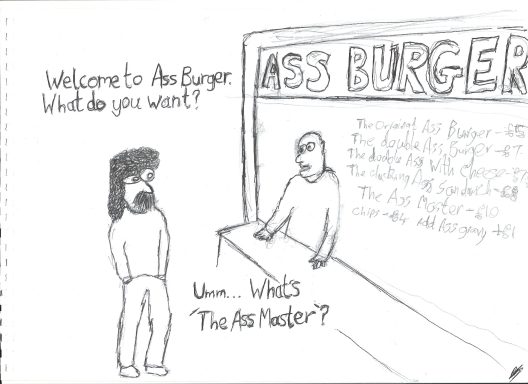 Welcome to Ass Burger.
What do you want?
ASS BURGER
The Original Ass Burger - £5
The double Ass Burger - £7
The double Ass With Cheese - £7
The Ass Sandwich - £8
The Ass Master - £10
chips - £4 add Ass gravy +£1
Umm... What's
'The Ass Master'?